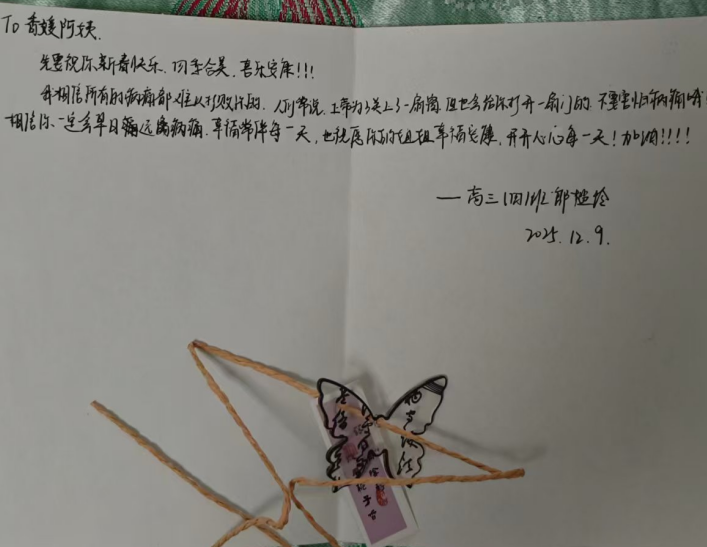 To 香媛阿姨,
先要祝你新春快乐,阖家合美,喜乐安康!!!
我相信所有的病痛都难以打败你的,人们常说,上帝为了关上了一扇窗,但也会给你打开一扇门的,不要害怕病痛哦
相信你一定会早日痛远离病痛,幸福常伴每一天,也祝愿你的姐姐幸福安康,开开心心每一天!加油!!!!
—高三(四)班
2025.12.9.